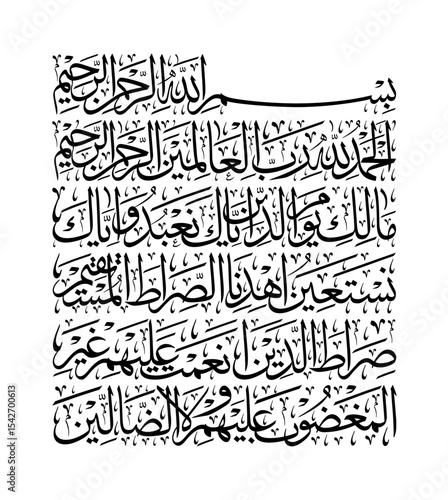 بِسْمِ اللَّهِ الرَّحْمٰنِ الرَّحِيمِ
الْحَمْدُ لِلَّهِ رَبِّ الْعَالَمِينَ الرَّحْمٰنِ الرَّحِيمِ
مَالِكِ يَوْمِ الدِّينِ إِيَّاكَ نَعْبُدُ وَإِيَّاكَ
نَسْتَعِينُ اهْدِنَا الصِّرَاطَ الْمُسْتَقِيمَ
صِرَاطَ الَّذِينَ أَنْعَمْتَ عَلَيْهِمْ غَيْرِ
الْمَغْضُوبِ عَلَيْهِمْ وَلَا الضَّالِّينَ
Adobe Stock | #1542700613